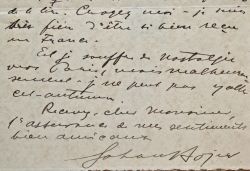 Croyez moi - je suis
très fier d'être si bien reçu
en France.
Et je souffre de nostalgie
vers Paris, mais malheureu-
sement - je ne peux pas y aller
cet automne.
Recevez, cher monsieur,
l'assurance de mes sentiments
bien amicaux
Johan Bojer